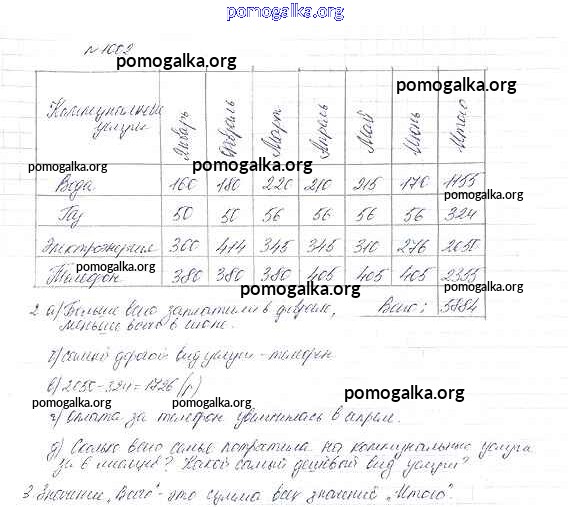 pomogalka.org
№ 1002
pomogalka.org
pomogalka.org
Коммунальные услуги Январь Февраль Март Апрель Май Июнь Итого
pomogalka.org
pomogalka.org
Вода 160 180 220 210 215 170 1155
pomogalka.org
Газ 50 50 56 56 56 56 324
pomogalka.org
Электроэнергия 360 414 345 345 310 276 2050
Телефон 380 380 380 405 405 405 2355
pomogalka.org
pomogalka.org
2 а) Больше всего заплатили в феврале, Всего: 5884
меньше всего в июне.
б) самый дорогой вид услуги - телефон
в) 2050-324=1726 (р)
pomogalka.org
pomogalka.org
pomogalka.org
г) оплата за телефон увеличилась в апреле.
д) Сколько всего семья потратила на коммунальные услуги
за 6 месяцев? Какой самый дешёвый вид услуги?
3. Значение "Всего" - это сумма всех значений "Итого".
pomogalka.org